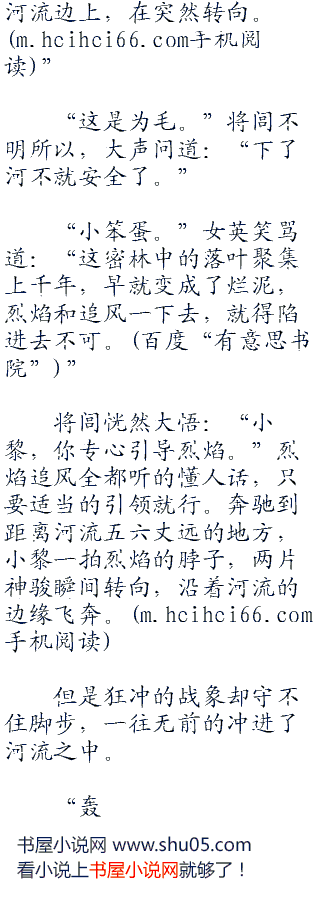 河流边上，在突然转向。
(m.hcihci66.com手机阅
读)”
“这是为毛。”将闾不
明所以，大声问道：“下了
河不就安全了。”
“小笨蛋。”女英笑骂
道：“这密林中的落叶聚集
上千年，早就变成了烂泥，
烈焰和追风一下去，就得陷
进去不可。(百度“有意思书
院”)”
将闾恍然大悟：“小
黎，你专心引导烈焰。”烈
焰追风全都听的懂人话，只
要适当的引领就行。奔驰到
距离河流五六丈远的地方，
小黎一拍烈焰的脖子，两片
神骏瞬间转向，沿着河流的
边缘飞奔。(m.hcihci66.com
手机阅读)
但是狂冲的战象却守不
住脚步，一往无前的冲进了
河流之中。
“轰
书屋小说网 www.shu05.com
看小说上书屋小说网就够了！